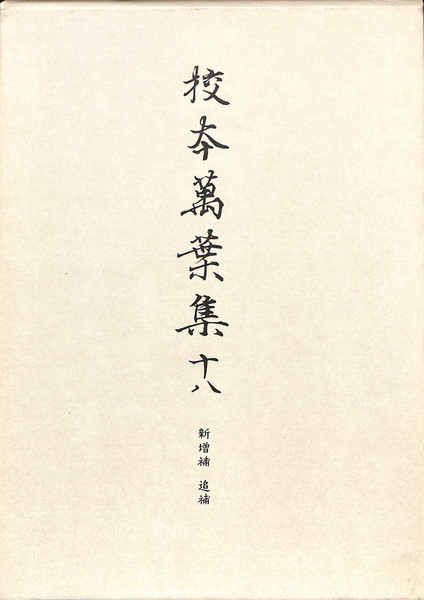 校本萬葉集 十八
新増補 追補